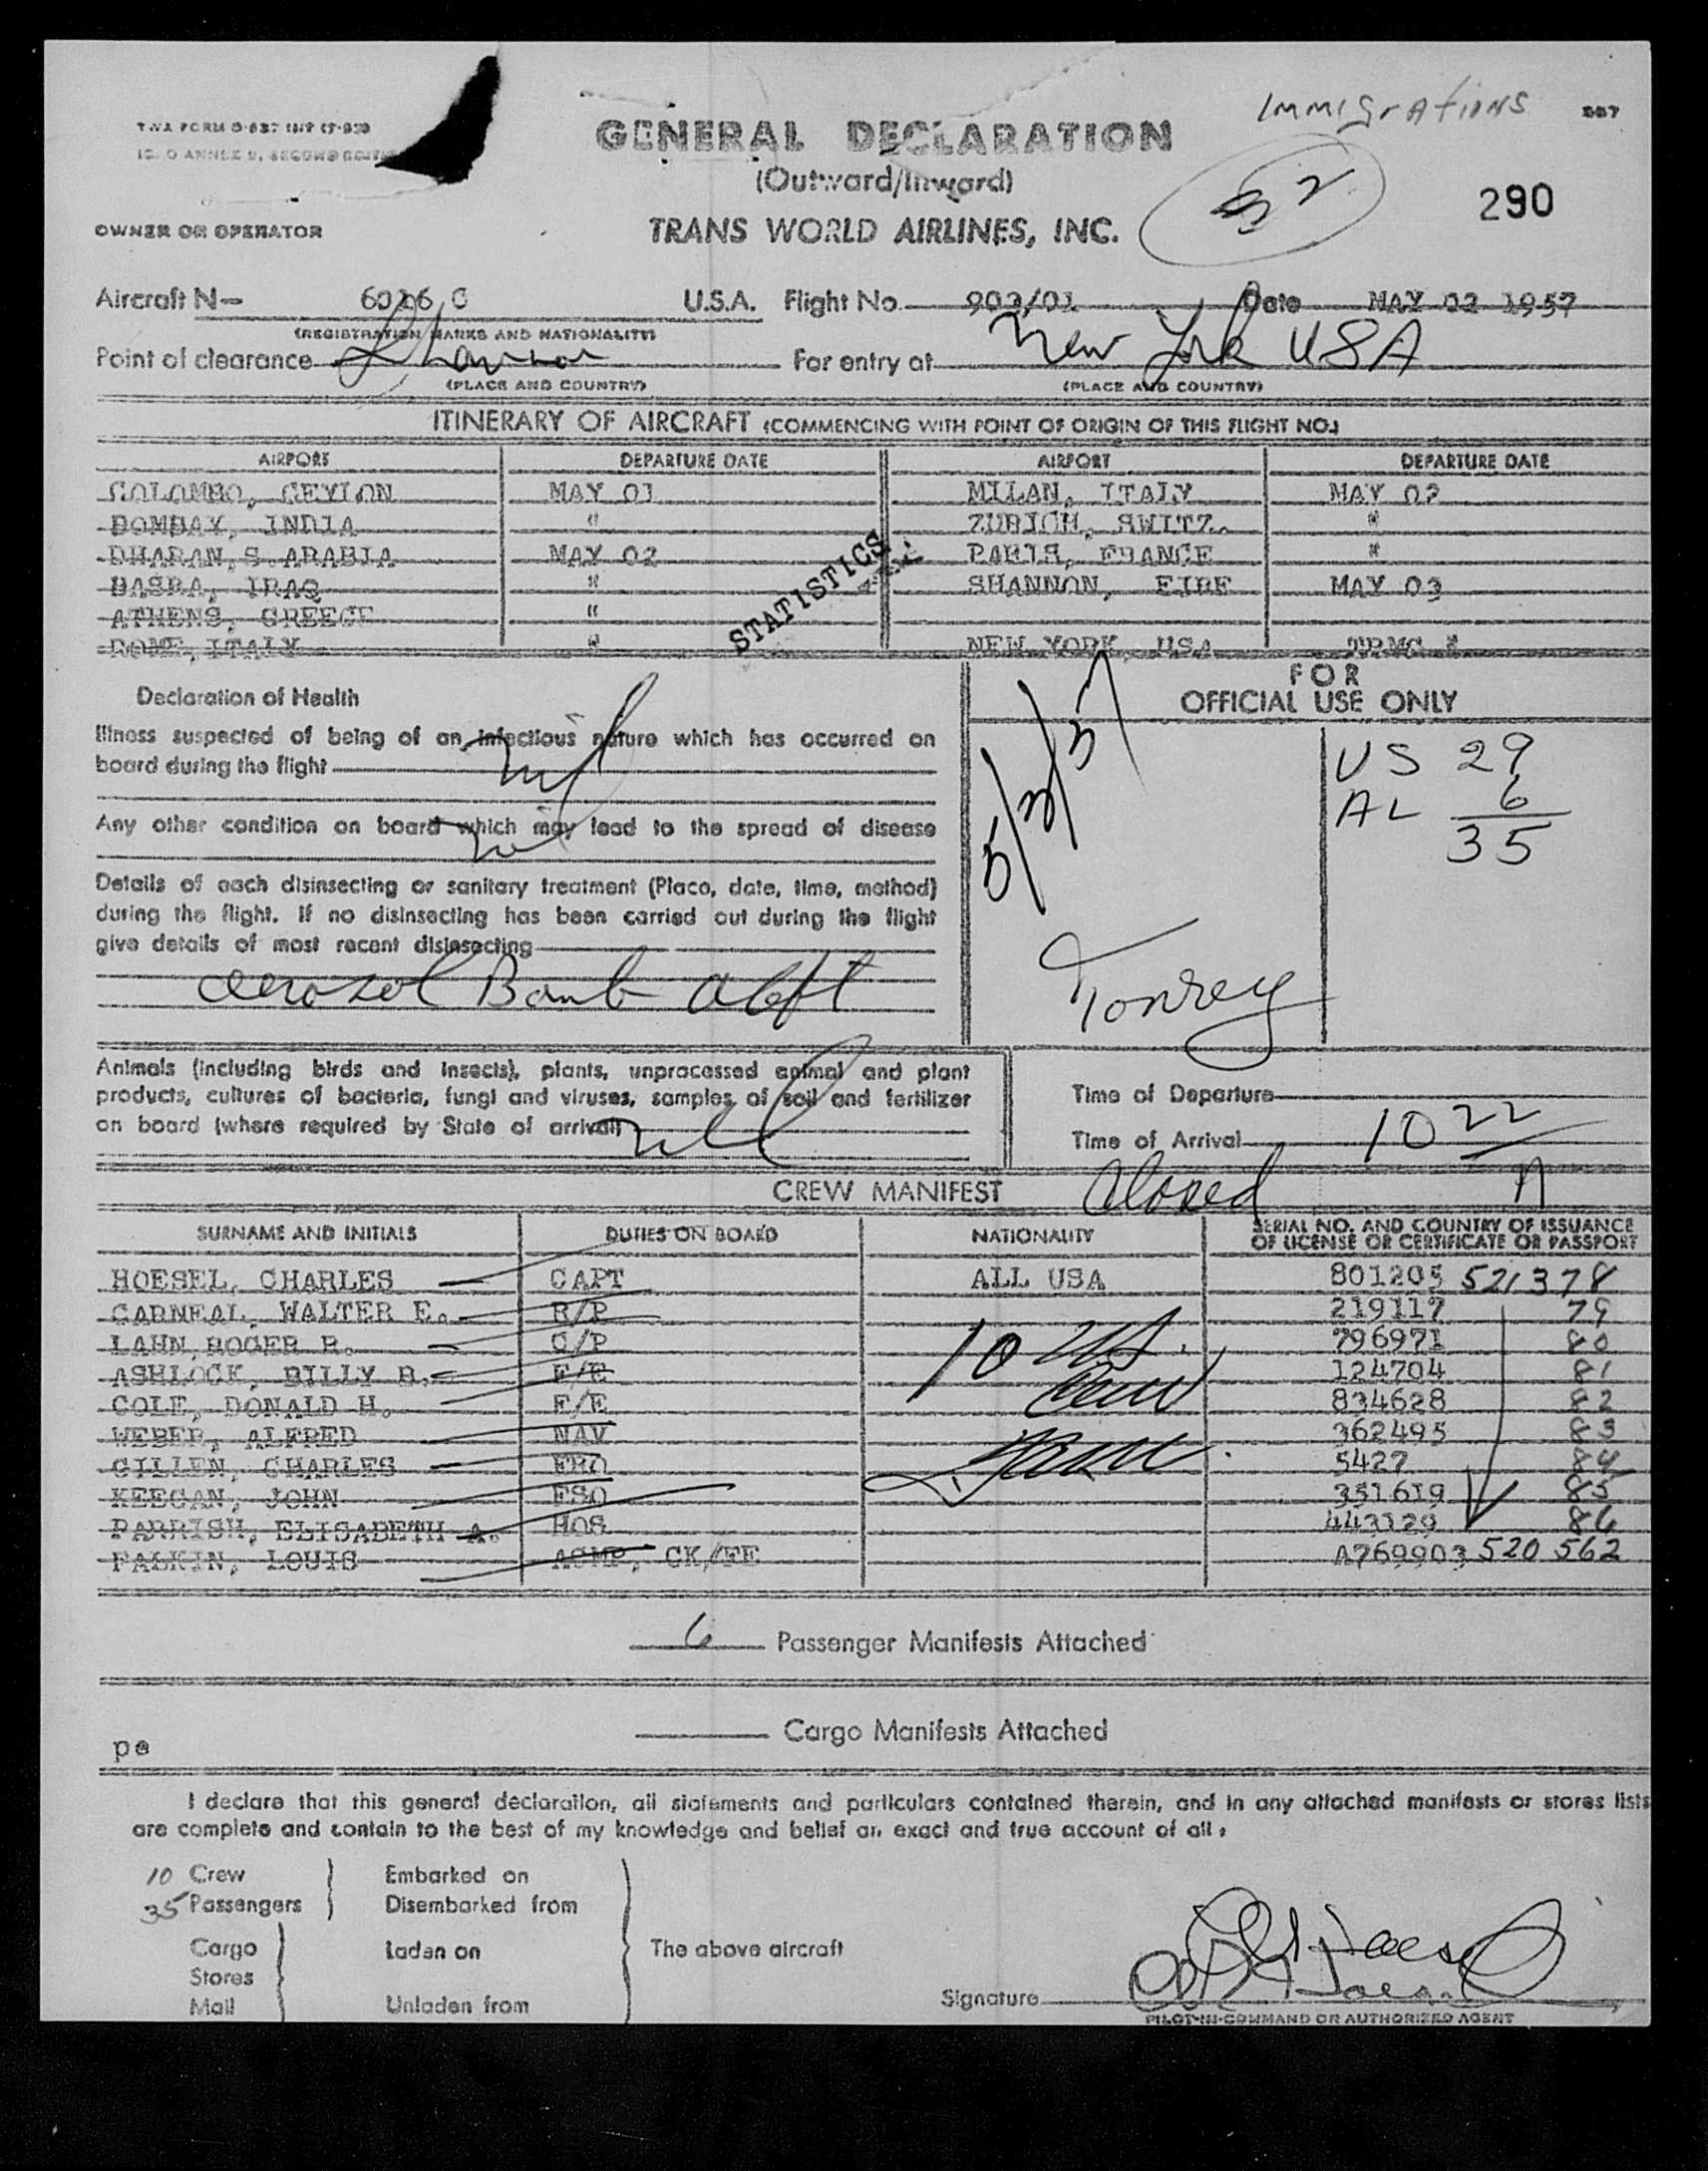 IMMIGrAtIONS 557
TWA FORM
GENERAL DECLARATION
(Outward/Inward)
32
290
OWNER OR OPERATOR
TRANS WORLD AIRLINES, INC.
Aircraft N- 6026 C U.S.A. Flight No. 902/01 Date MAY 02 1957
(REGISTRATION MARKS AND NATIONALITY)
Point of clearance Shannon For entry at New York USA
(PLACE AND COUNTRY) (PLACE AND COUNTRY)
ITINERARY OF AIRCRAFT (COMMENCING WITH POINT OF ORIGIN OF THIS FLIGHT NO.)
AIRPORT DEPARTURE DATE AIRPORT DEPARTURE DATE
COLOMBO, CEYLON MAY 01 MILAN, ITALY MAY 02
BOMBAY, INDIA " ZURICH, SWITZ. "
DHARAN, S. ARABIA MAY 02 PARIS, FRANCE "
BASRA, IRAQ " SHANNON, EIRE MAY 03
ATHENS, GREECE "
ROME, ITALY " NEW YORK, USA TRMG "
STATISTICS
FOR
OFFICIAL USE ONLY
Declaration of Health
Illness suspected of being of an infectious nature which has occurred on
board during the flight nil
Any other condition on board which may lead to the spread of disease
nil
Details of each disinsecting or sanitary treatment (Place, date, time, method)
during the flight. If no disinsecting has been carried out during the flight
give details of most recent disinsecting
aerosol Bomb
5/3/57
US 29
AL 6
35
Tonrey
Animals (including birds and insects), plants, unprocessed animal and plant
products, cultures of bacteria, fungi and viruses, samples of soil and fertilizer
on board (where required by State of arrival) nil
Time of Departure
Time of Arrival 10 22
A
CREW MANIFEST Closed
SURNAME AND INITIALS DUTIES ON BOARD NATIONALITY SERIAL NO. AND COUNTRY OF ISSUANCE
OF LICENSE OR CERTIFICATE OR PASSPORT
HOESEL, CHARLES CAPT ALL USA 801205 521378
CARNEAL, WALTER E. R/P 219117 79
LAHN, ROGER R. C/P 796971 80
ASHLOCK, BILLY B. F/E 124704 81
COLE, DONALD H. F/E 834628 82
WEBER, ALFRED NAV 362495 83
GILLEN, CHARLES FRO 5427 84
KEEGAN, JOHN FSO 351619 85
PARRISH, ELISABETH A. HOS 443129 86
FALKIN, LOUIS ACMP, CK/FE A769903 520 562
10 US.
Crew
6 Passenger Manifests Attached
Cargo Manifests Attached
pe
I declare that this general declaration, all statements and particulars contained therein, and in any attached manifests or stores lists
are complete and contain to the best of my knowledge and belief an exact and true account of all:
10 Crew Embarked on
35 Passengers Disembarked from
Cargo Laden on The above aircraft
Stores
Mail Unladen from
Signature C Hoesel
PILOT-IN-COMMAND OR AUTHORIZED AGENT